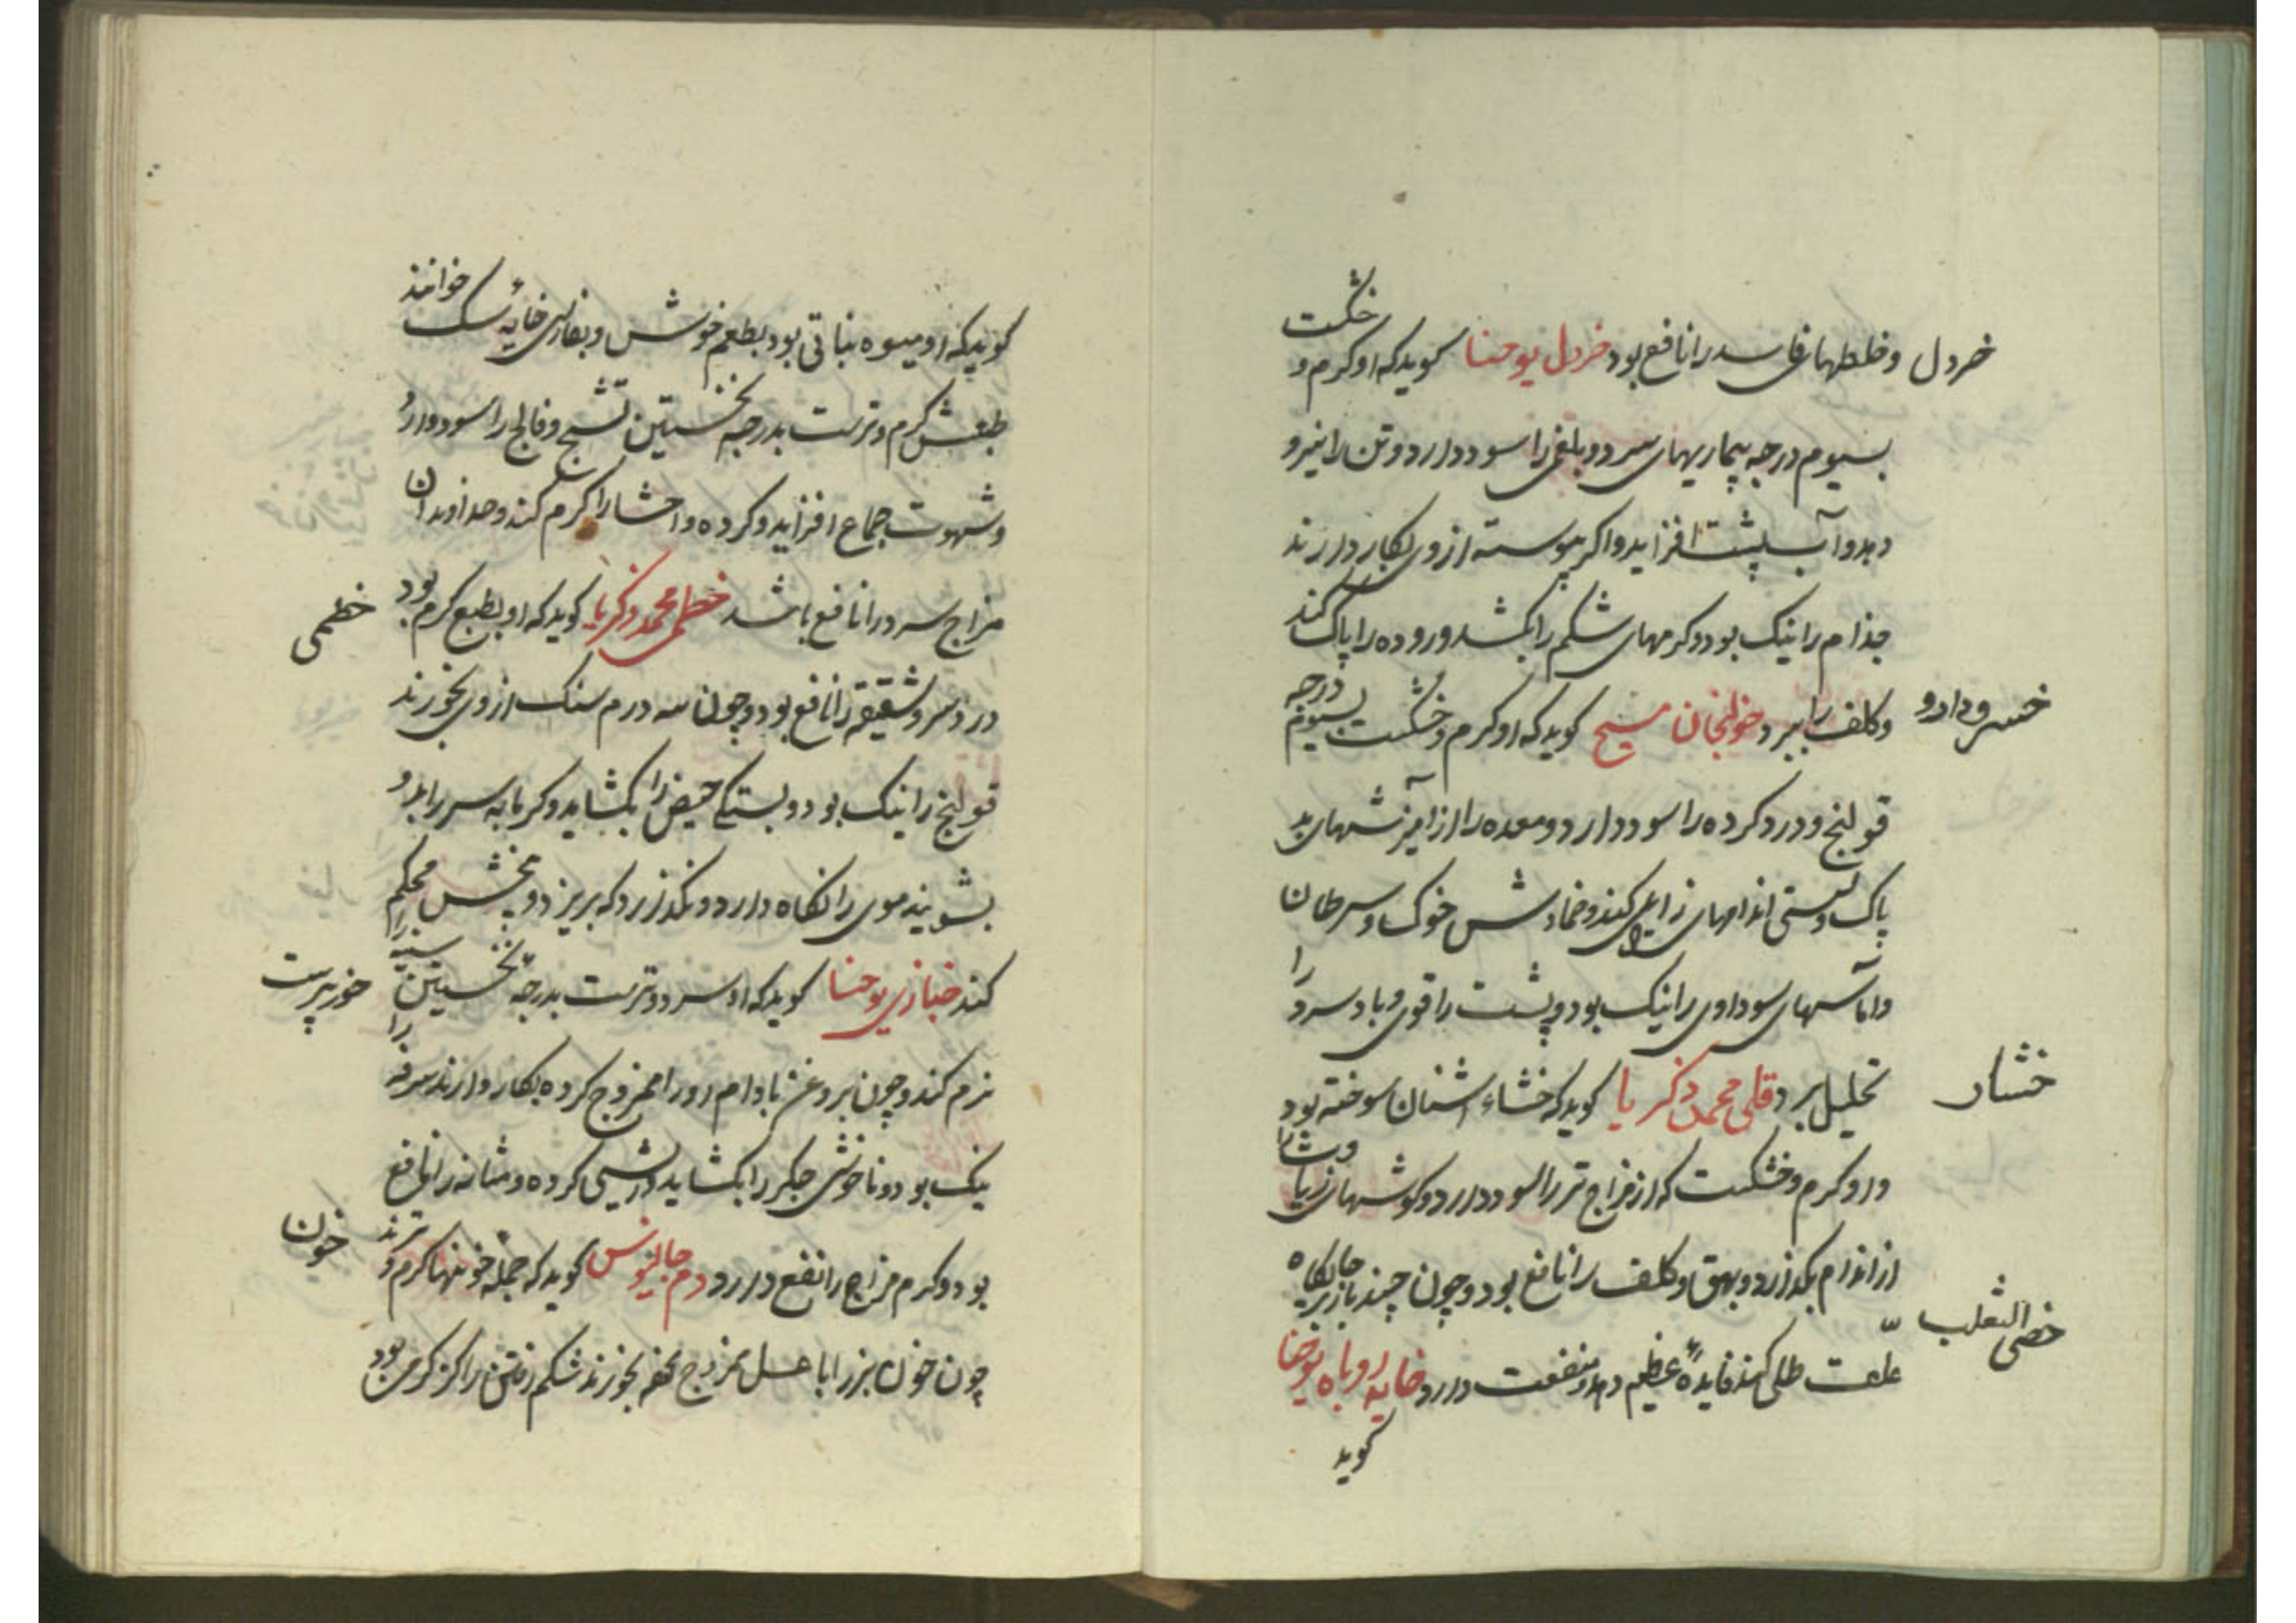 خردل
وخلطهای فاسد را نافع بود خردل یوحنا کوید که او کرم و خشکست
بسیوم درجه بیماریهای سرد و بلغمی را سود دارد و تن را نیرو
دهد و آب پشت افزاید و اکر پیوسته از وی بکار دارند
جذام را نیک بود و کرمهای شکم را بکشد و روده را پاک کند
خسرودارو
و کلف را ببرد خولنجان مسیح کوید که او کرم و خشکست بسیوم درجه
قولنج و درد کرده را سود دارد و معده را از آمیزشهای بد
پاک و سستی اندامهای زایل کند و ضمادش خوک و سرطان
و آماسهای سوداوی را نیک بود و پشت را قوی و باد سرد را
خشار
تحلیل برد قلی محمد ذکریا کوید که خشاء اشنان سوخته بود
دارو کرم و خشکست که از مزاج تر را سود دارد و کوشهای
از اندام بکدازد و بهق و کلف را نافع بود و چون چند بار بر جایکاه
خصی الثعلب
علت طلی کنند فایدهٔ عظیم دهد و منفعت دارد خایه روباه یوحنا
کوید
کوید که او میوه نباتی بود بطعم خوش و بفارسی خایه سک خوانند
طبعش کرم و ترست بدرجه نخستین تشنج و فالج را سود دارد
و شهوت جماع افزاید و کرده و احشا را کرم کند و خداوندان
خطمی
مزاج سرد را نافع باشد خطمی محمد ذکریا کوید که او بطبع کرم بود
درد سر و شقیقه را نافع بود و چون سه درم سنک از وی بخورند
قولنج را نیک بود و بستکی حیض را بکشاید و کر بابه سر را بدو
بشویند موی را نکاه دارد و نکذارد که بریزد و بیخش محکم
خورپرست
کند خبازی یوحنا کوید که او سرد و ترست بدرجه نخستین سینه را
نرم کند و چون بروغن بادام او را ممزوج کرده بکار دارند سرفه را
نیک بود و ناخوشی جکر را بکشاید و ریشی کرده و مثانه را نافع
خون
بود و کرم مزاج را نفع دارد دم جالینوس کوید که جمله خونها کرم و ترند
چون خون بز را با عسل ممزوج بخورند شکم رفتن را کز کرمی بود